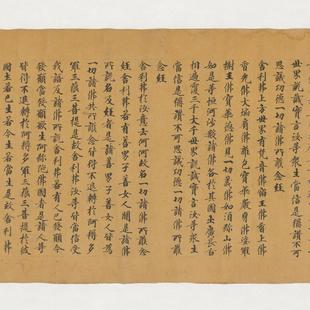 世界說誠實言汝等眾生當信是稱讚不可
思議功德一切諸佛所護念經
舍利弗上方世界有梵音佛宿王佛香上佛
香光佛大焰肩佛雜色寶華嚴身佛娑羅
樹王佛寶華德佛見一切義佛如須彌山佛
如是等恒河沙數諸佛各於其國出廣長舌
相遍覆三千大千世界說誠實言汝等眾生
當信是稱讚不可思議功德一切諸佛所護
念經
舍利弗於汝意云何何故名一切諸佛所護念
經舍利弗若有善男子善女人聞是諸佛
所說名及經名者是諸善男子善女人皆為
一切諸佛共所護念皆得不退轉於阿耨多
羅三藐三菩提是故舍利弗汝等當信受
我語及諸佛所說舍利弗若有人已發願今
發願當發願欲生阿彌陀佛國者是諸人等
皆得不退轉於阿耨多羅三藐三菩提於彼
國土若已生若今生若當生是故舍利弗